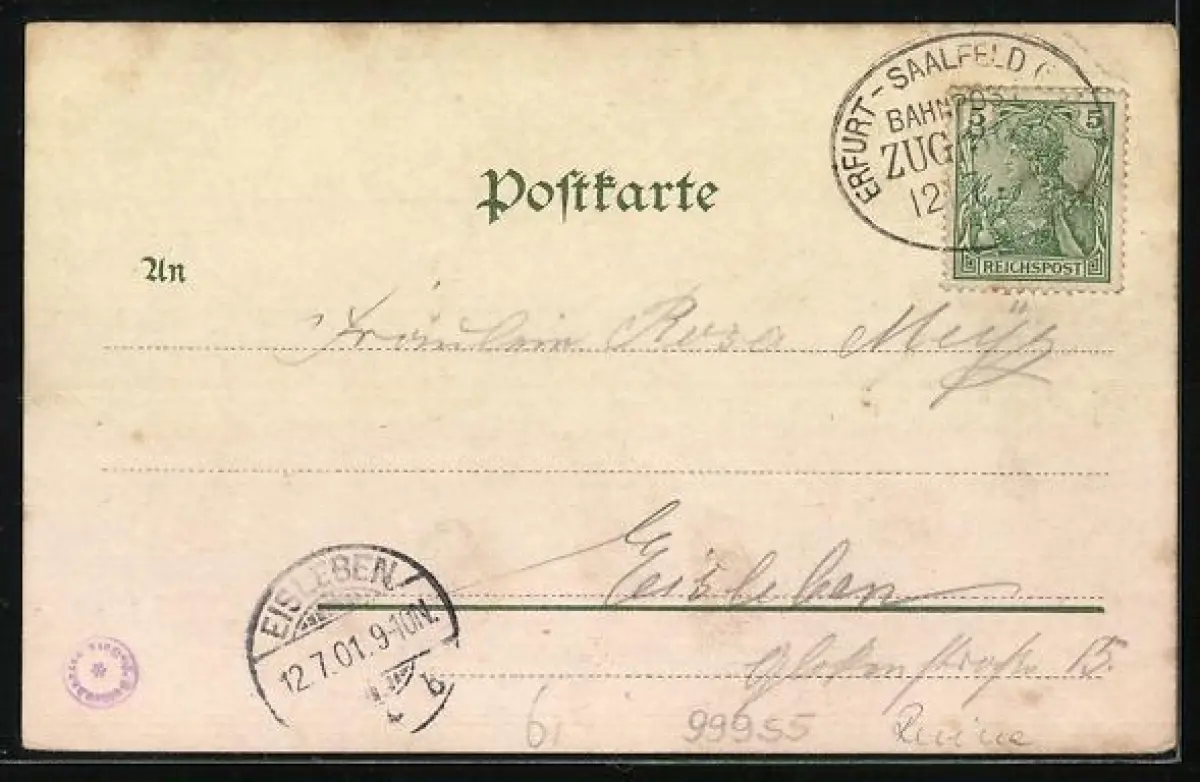 ERFURT-SAALFELD
BAHNPOST
ZUG
12
5 5
REICHSPOST
Postkarte
An
Fräulein Rosa
Eisleben
15
EISLEBEN
12.7.01.9-10N.
b
99955
Ruine